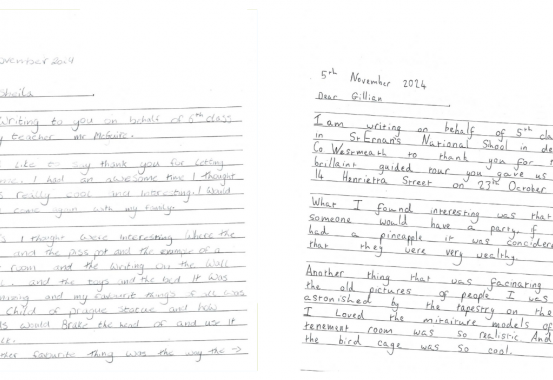 November 2024
Sheila
Writing to you on behalf of 5th class
teacher mr McGuire.
Like to say thank you for letting
I had an awesome time I thought
really cool and interesting. I would
come again with my family.
I thought were interesting where the
and the piss pot and the example of a
room and the writing on the wall
and the toys and the bed It was
and my favourite things of all was
Child of prague Statue and how
would Brake the head of and use it
favourite thing was the way the →
5th November 2024
Dear Gillian
I am writing on behalf of 5th cla
in St Ernan's National Shool in de
Co Westmeath to thank you for t
brillaint guided tour you gave us
14 Henrietta Street on 23rd October
What I faund interesting was that
someone would have a party. f
had a pincapple it was considere
that they were very wealthy.
Another thing that was facinating
the old pictures of people I was
astonished by the tapestry on the
I Loved the mitairure models of
tenement room was so realistic And
the bird cage was so cool.